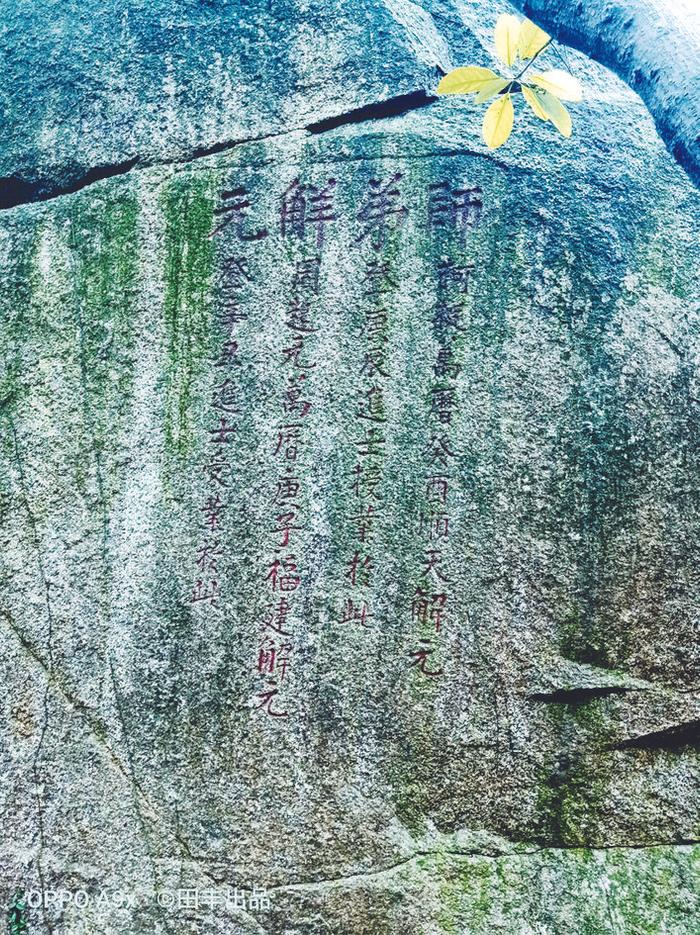 師弟解元
柯挺萬曆癸酉順天解元
登庚辰進士授業於此
周起元萬曆庚子福建解元
登辛丑進士受業於此
OPPO A9x ©田丰出品